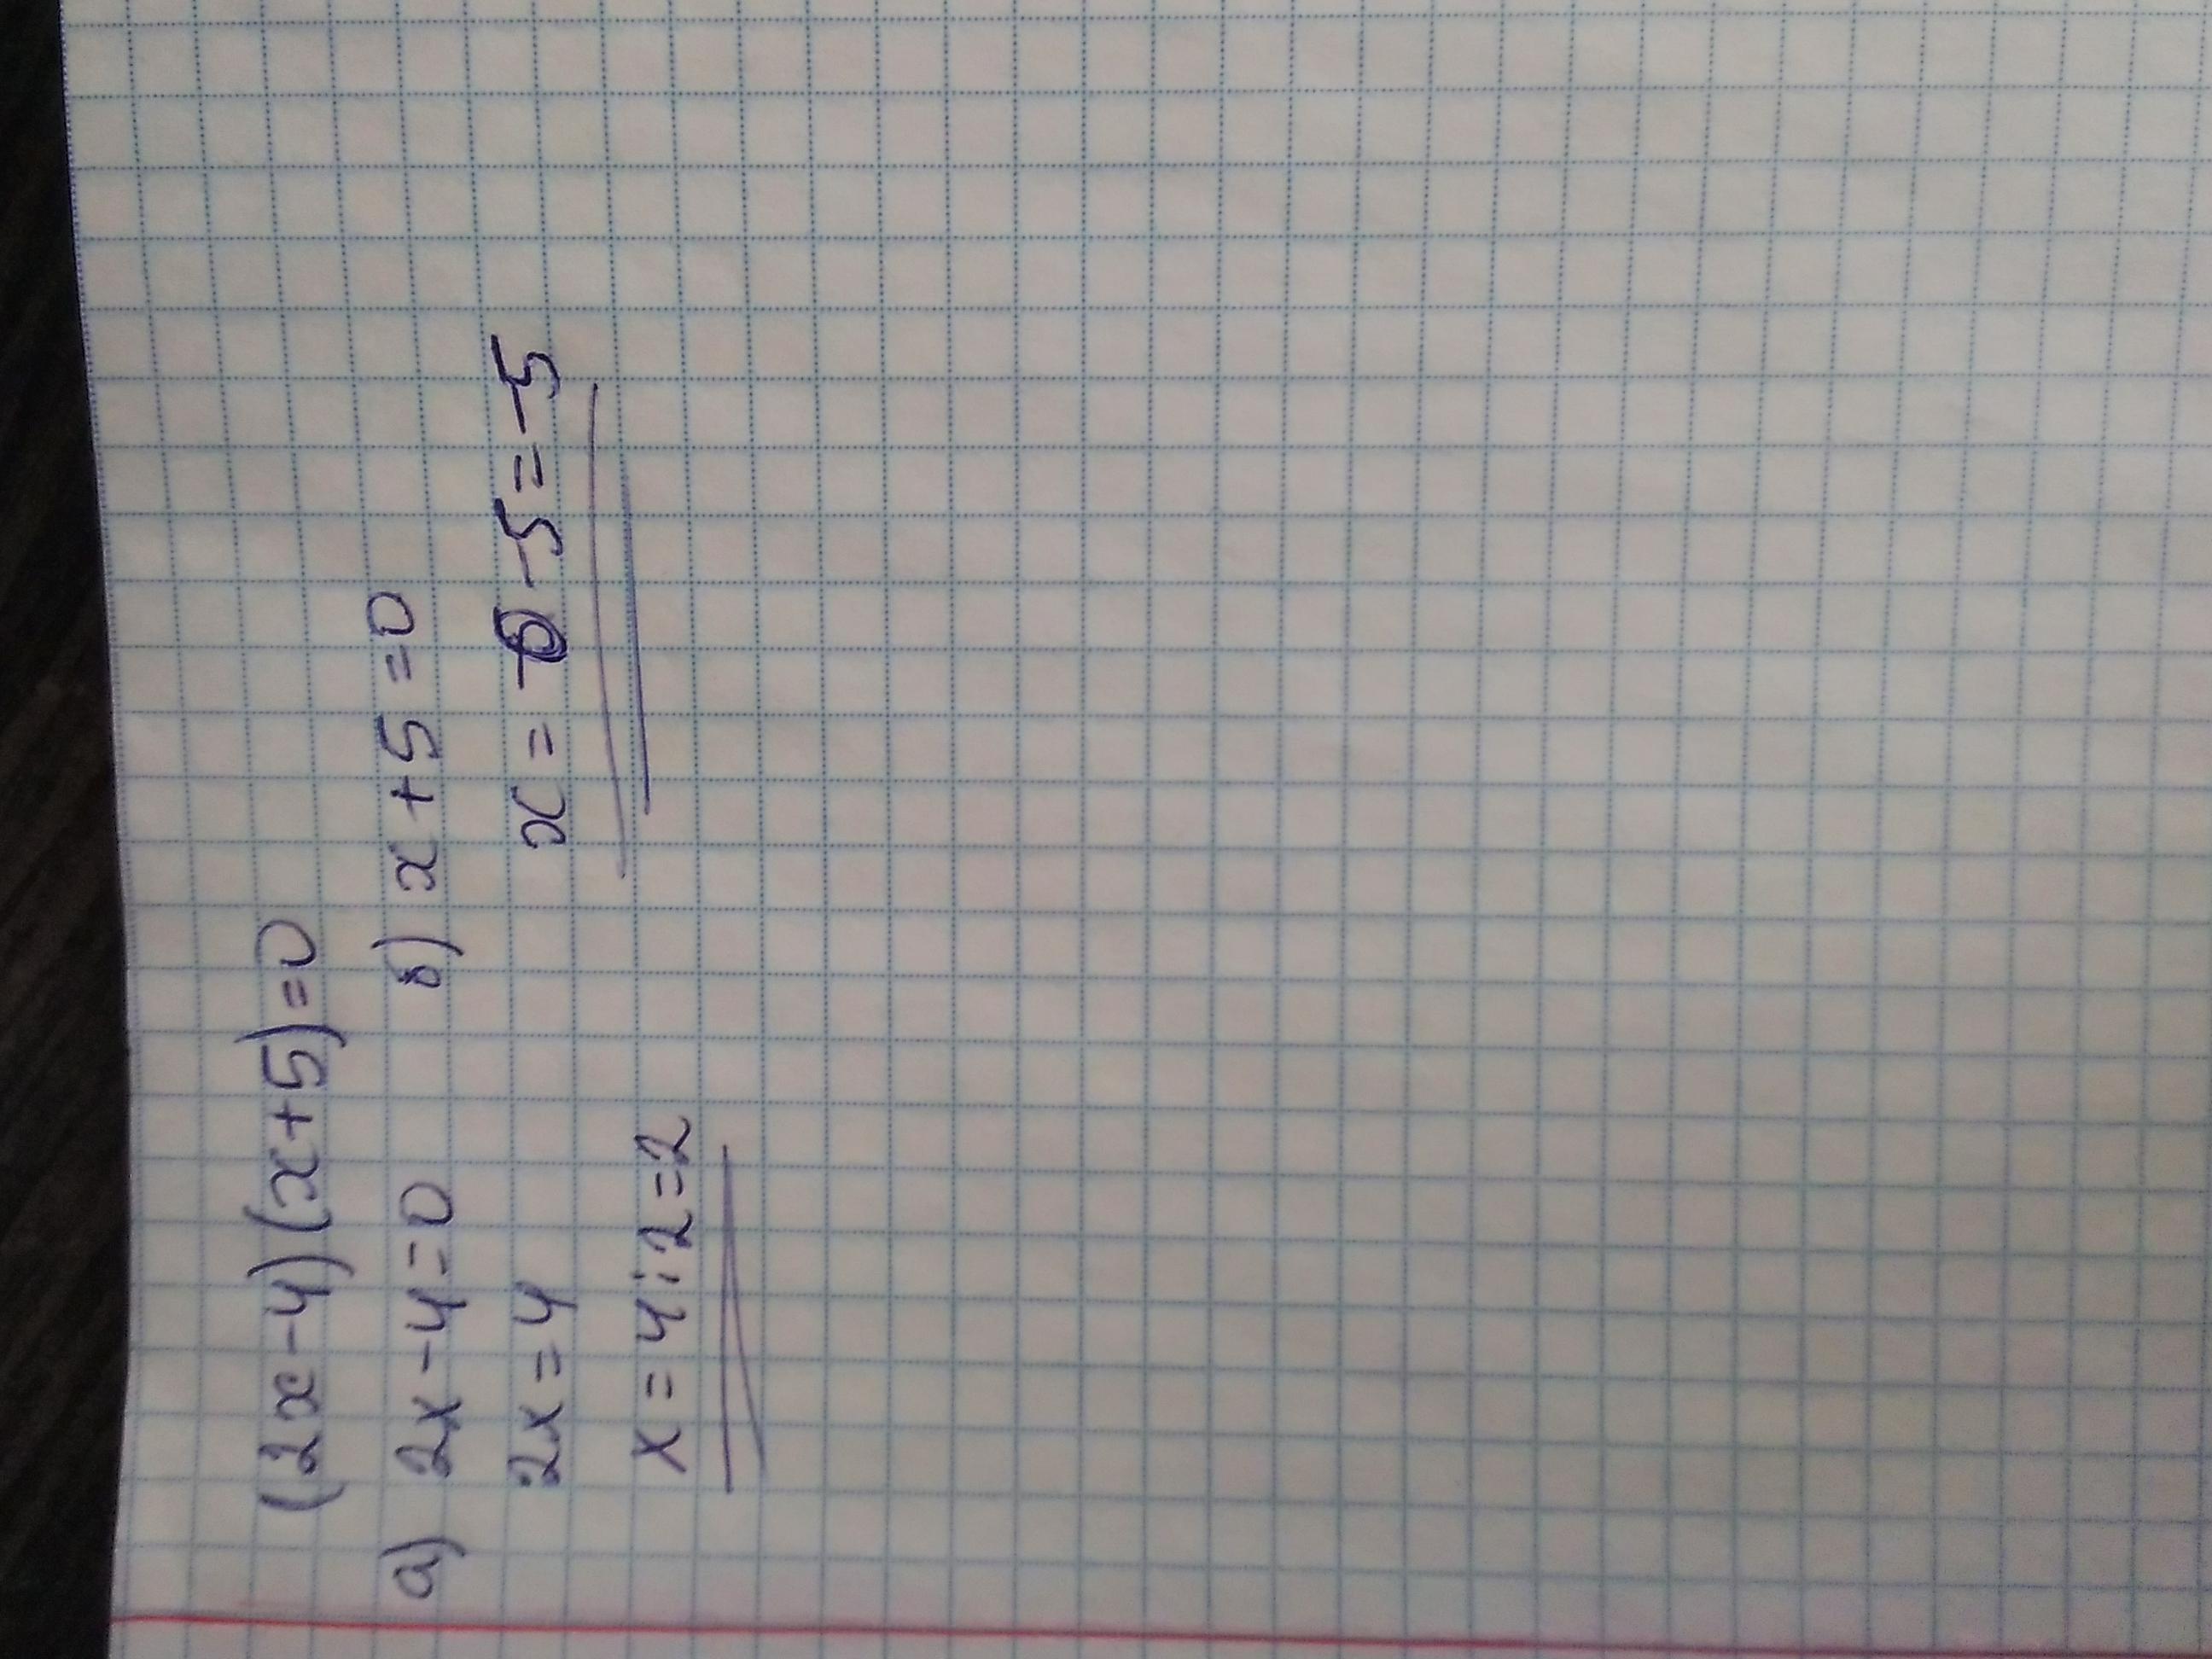 (2x-4)(x+5)=0
а) 2x-4=0 б) x+5=0
2x=4 x=0-5=-5
x=4:2=2